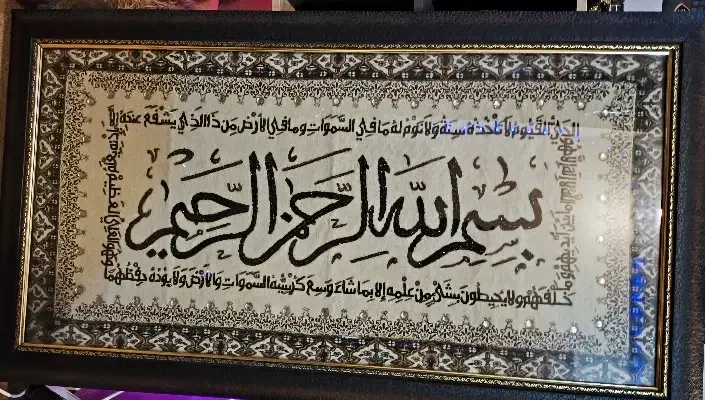 بسم الله الرحمن الرحيم
الحي القيوم لا تأخذه سنة ولا نوم له ما في السموات وما في الأرض من ذا الذي يشفع عنده إلا
خلفهم ولا يحيطون بشئ من علمه إلا بما شاء وسع كرسيه السموات والأرض ولا يؤده حفظهما